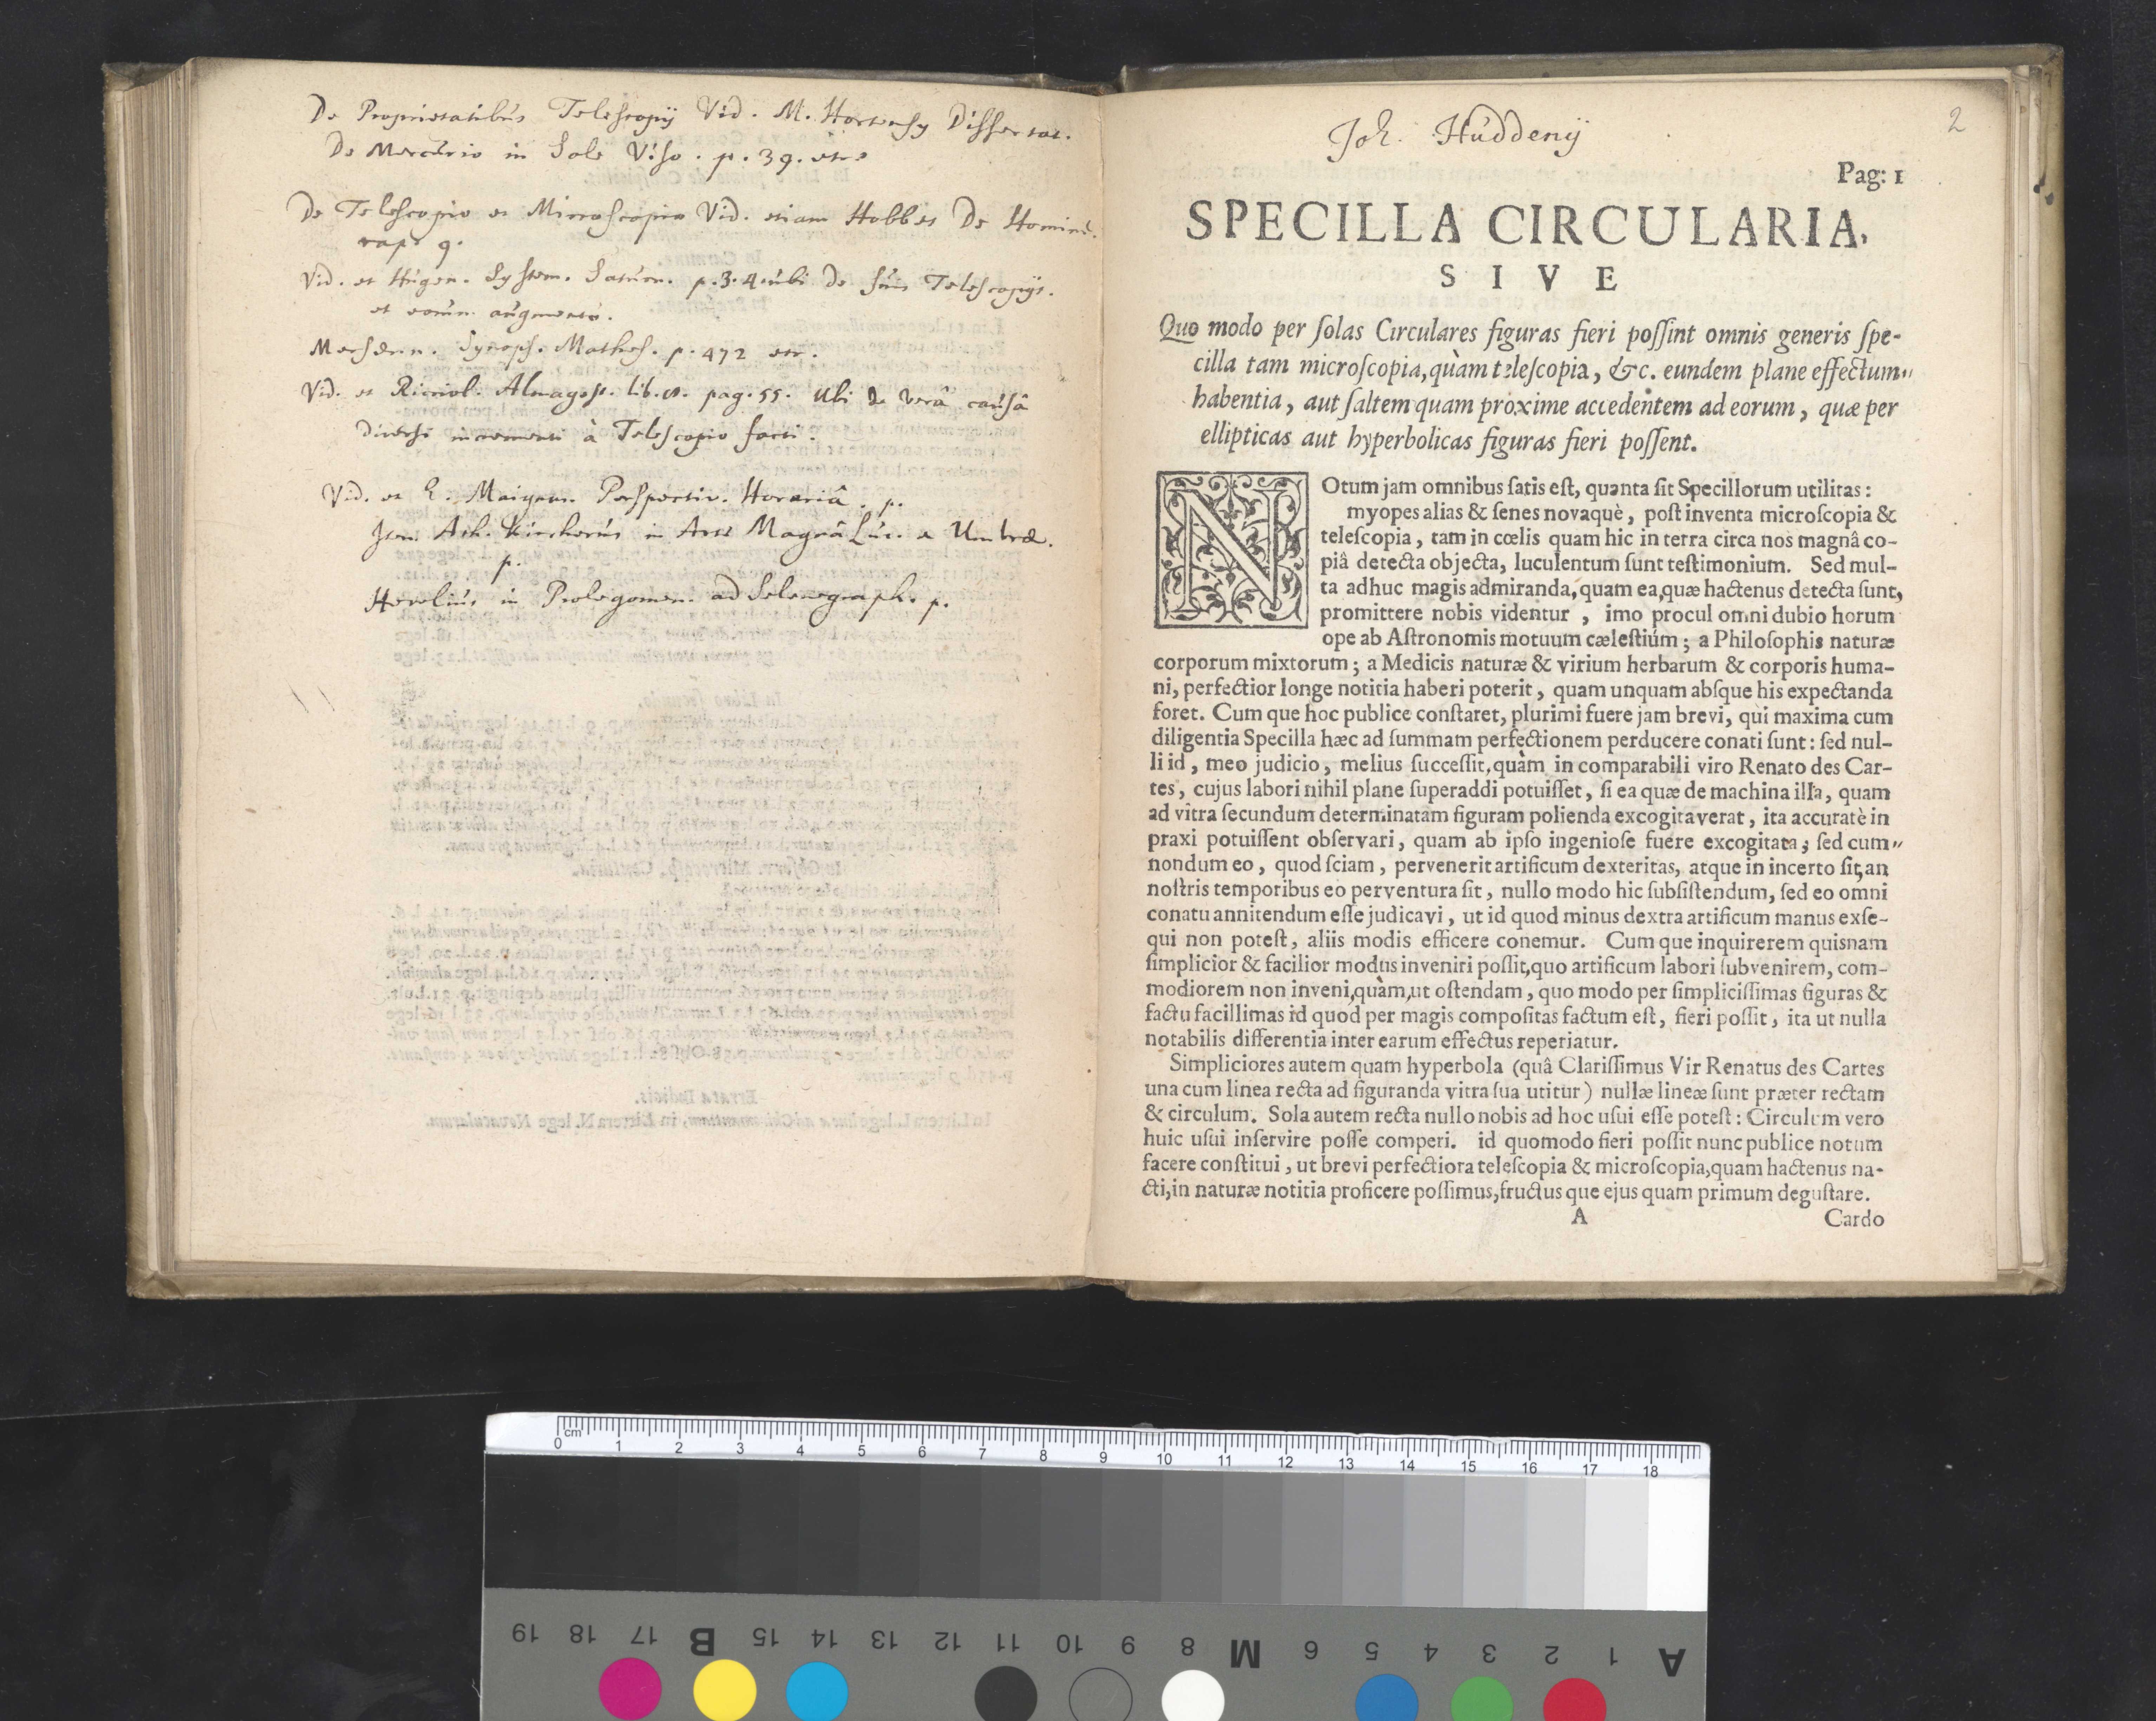 De Proprietatibus Telescopij Vid. M. Hortensij Dissertat.
De Mercurio in Sole Viso. p. 39. etc.
De Telescopio et Microscopio Vid. etiam Hobbes De Homine.
cap. 9.
Vid. et Hugen. System. Saturn. p. 3. 4. ubi de suis Telescopijs.
et eorum augmento.
Mersenn. Synops. Mathes. p. 472 etc.
Vid. et Ricciol. Almagest. lib. pag. 55. Ubi de verâ causâ
diversi incrementi à Telescopio facti.
Vid. et Maignan. Perspectiv. Horariâ. p.
Item Ath. Kircherus in Arte Magnâ Luc. & Umbræ.
p.
Hevelius in Prolegomen. ad Selenograph. p.
Joh. Huddenij
2
Pag: 1
SPECILLA CIRCULARIA,
SIVE
Quo modo per ſolas Circulares figuras fieri poſſint omnis generis ſpe-
cilla tam microſcopia, quàm teleſcopia, &c. eundem plane effectum
habentia, aut ſaltem quam proxime accedentem ad eorum, quæ per
ellipticas aut hyperbolicas figuras fieri poſſent.
NOtum jam omnibus ſatis eſt, quanta ſit Specillorum utilitas:
myopes alias & ſenes novaquè, poſt inventa microſcopia &
teleſcopia, tam in cœlis quam hic in terra circa nos magnâ co-
piâ detecta objecta, luculentum ſunt teſtimonium. Sed mul-
ta adhuc magis admiranda, quam ea, quæ hactenus detecta ſunt,
promittere nobis videntur, imo procul omni dubio horum
ope ab Aſtronomis motuum cæleſtiúm; a Philoſophis naturæ
corporum mixtorum; a Medicis naturæ & virium herbarum & corporis huma-
ni, perfectior longe notitia haberi poterit, quam unquam abſque his expectanda
foret. Cum que hoc publice conſtaret, plurimi fuere jam brevi, qui maxima cum
diligentia Specilla hæc ad ſummam perfectionem perducere conati ſunt: ſed nul-
li id, meo judicio, melius ſucceſſit, quàm in comparabili viro Renato des Car-
tes, cujus labori nihil plane ſuperaddi potuiſſet, ſi ea quæ de machina illa, quam
ad vitra ſecundum determinatam figuram polienda excogitaverat, ita accuratè in
praxi potuiſſent obſervari, quam ab ipſo ingenioſe fuere excogitata; ſed cum
nondum eo, quod ſciam, pervenerit artificum dexteritas, atque in incerto ſit, an
noſtris temporibus eo perventura ſit, nullo modo hic ſubſiſtendum, ſed eo omni
conatu annitendum eſſe judicavi, ut id quod minus dextra artificum manus exſe-
qui non poteſt, aliis modis efficere conemur. Cum que inquirerem quisnam
ſimplicior & facilior modus inveniri poſſit, quo artificum labori ſubvenirem, com-
modiorem non inveni, quàm, ut oſtendam, quo modo per ſimpliciſſimas figuras &
factu facillimas id quod per magis compoſitas factum eſt, fieri poſſit, ita ut nulla
notabilis differentia inter earum effectus reperiatur.
Simpliciores autem quam hyperbola (quâ Clariſſimus Vir Renatus des Cartes
una cum linea recta ad figuranda vitra ſua utitur) nullæ lineæ ſunt præter rectam
& circulum. Sola autem recta nullo nobis ad hoc uſui eſſe poteſt: Circulum vero
huic uſui inſervire poſſe comperi. id quomodo fieri poſſit nunc publice notum
facere conſtitui, ut brevi perfectiora teleſcopia & microſcopia, quam hactenus na-
cti, in naturæ notitia proficere poſſimus, fructus que ejus quam primum deguſtare.
A Cardo
0 cm 1 2 3 4 5 6 7 8 9 10 11 12 13 14 15 16 17 18
A 1 2 3 4 5 6 M 8 9 10 11 12 13 14 15 B 17 18 19